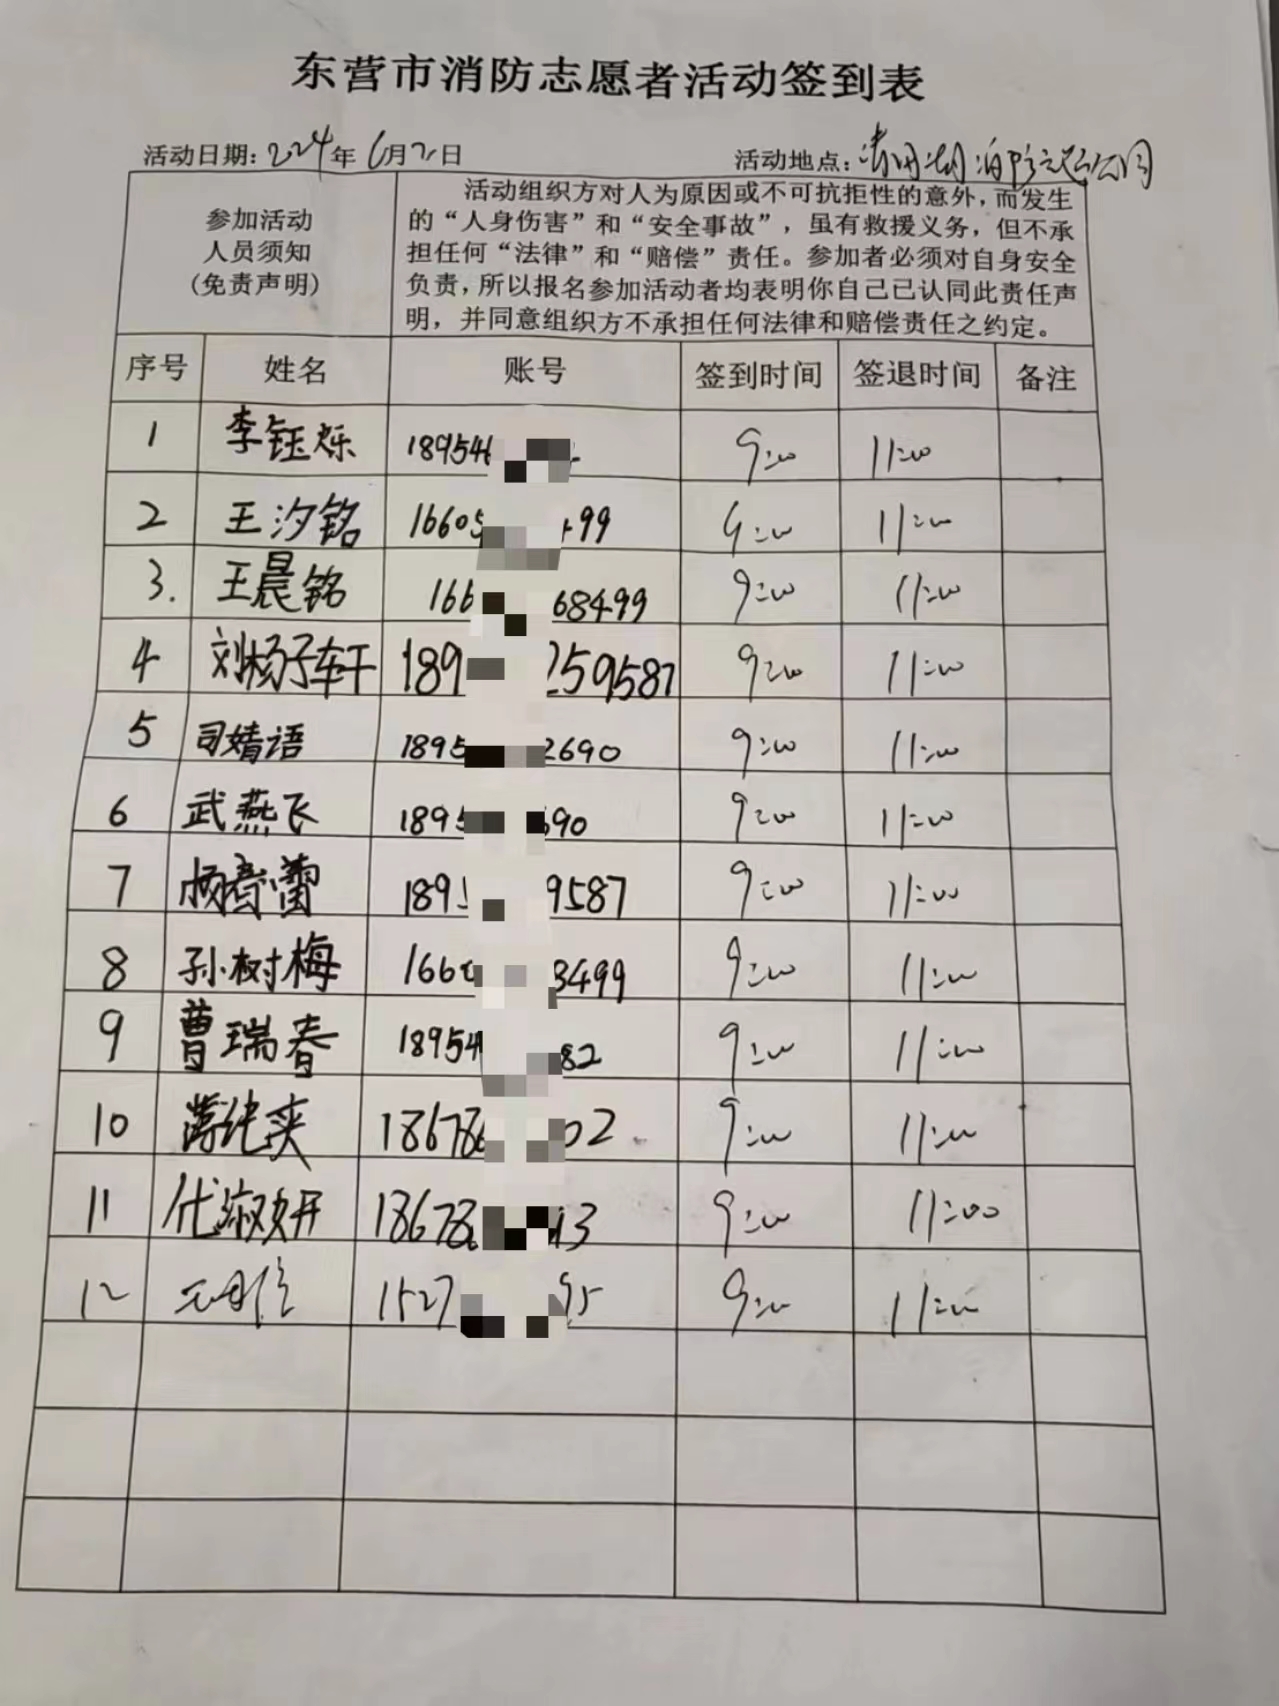 东营市消防志愿者活动签到表
活动日期: 2024年6月21日 活动地点: 消防 公园
参加活动
人员须知
(免责声明)
活动组织方对人为原因或不可抗拒性的意外,而发生
的“人身伤害”和“安全事故”,虽有救援义务,但不承
担任何“法律”和“赔偿”责任。参加者必须对自身安全
负责,所以报名参加活动者均表明你自己已认同此责任声
明,并同意组织方不承担任何法律和赔偿责任之约定。
序号 姓名 账号 签到时间 签退时间 备注
1 李钰烁 189546 9:00 11:00
2 王汐铭 16605 499 9:00 11:00
3. 王晨铭 166 68499 9:00 11:00
4 刘杨子轩 189 259587 9:00 11:00
5 司婧语 1895 2690 9:00 11:00
6 武燕飞 1895 690 9:00 11:00
7 杨春蕾 1895 9587 9:00 11:00
8 孙树梅 1660 8499 9:00 11:00
9 曹瑞春 18954 82 9:00 11:00
10 18678 02 9:00 11:00
11 代淑妍 18678 13 9:00 11:00
12 1527 95 9:00 11:00